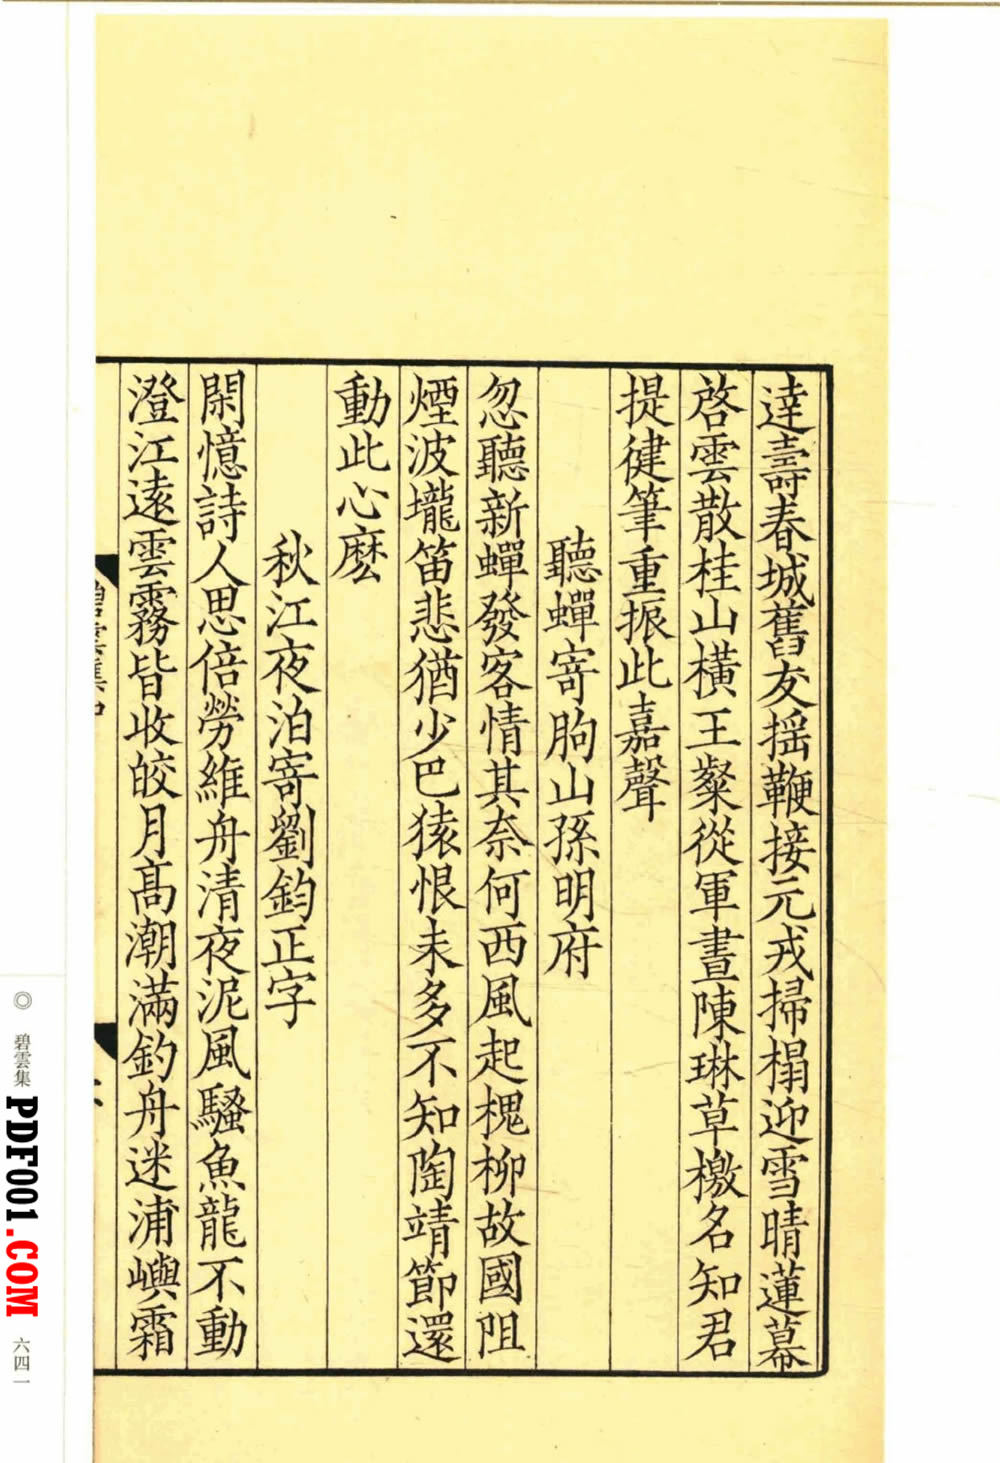 逹壽春城舊友揺鞭接元戎掃榻迎雪晴蓮幕
啓雲散桂山橫王粲從軍晝陳琳草檄名知君
提健筆重振此嘉聲
聽蟬寄朐山孫明府
忽聽新蟬發客情其奈何西風起槐柳故國阻
煙波壠笛悲猶少巴猿恨未多不知陶靖節還
動此心麽
秋江夜泊寄劉鈞正字
閑憶詩人思倍勞維舟清夜泥風騷魚龍不動
澄江遠雲霧皆收皎月髙潮滿釣舟迷浦嶼霜
碧雲集中
◎ 碧雲集
PDF001.COM
六四一